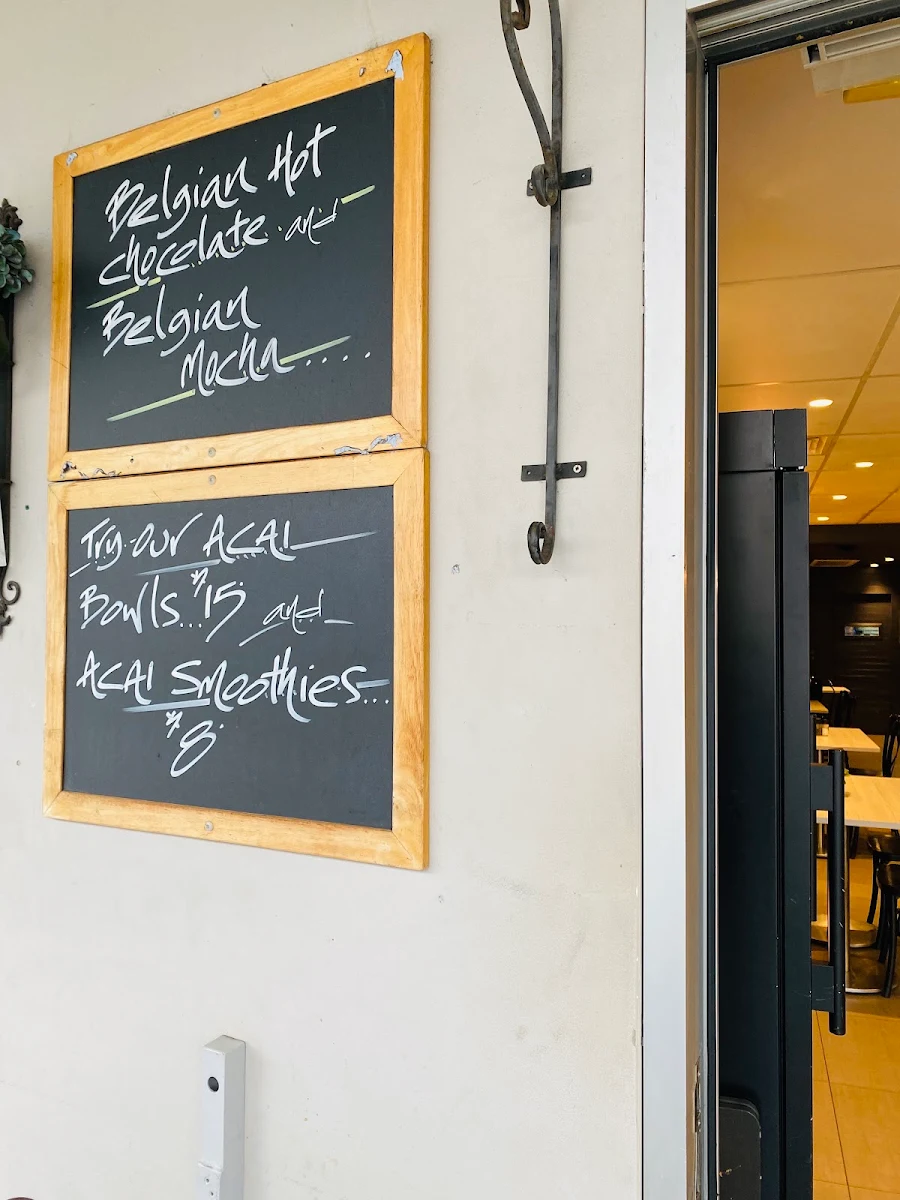 Belgian Hot
chocolate and
Belgian
Mocha.....
Try our ACAI
Bowls...$15 and
ACAI Smoothies...
$8